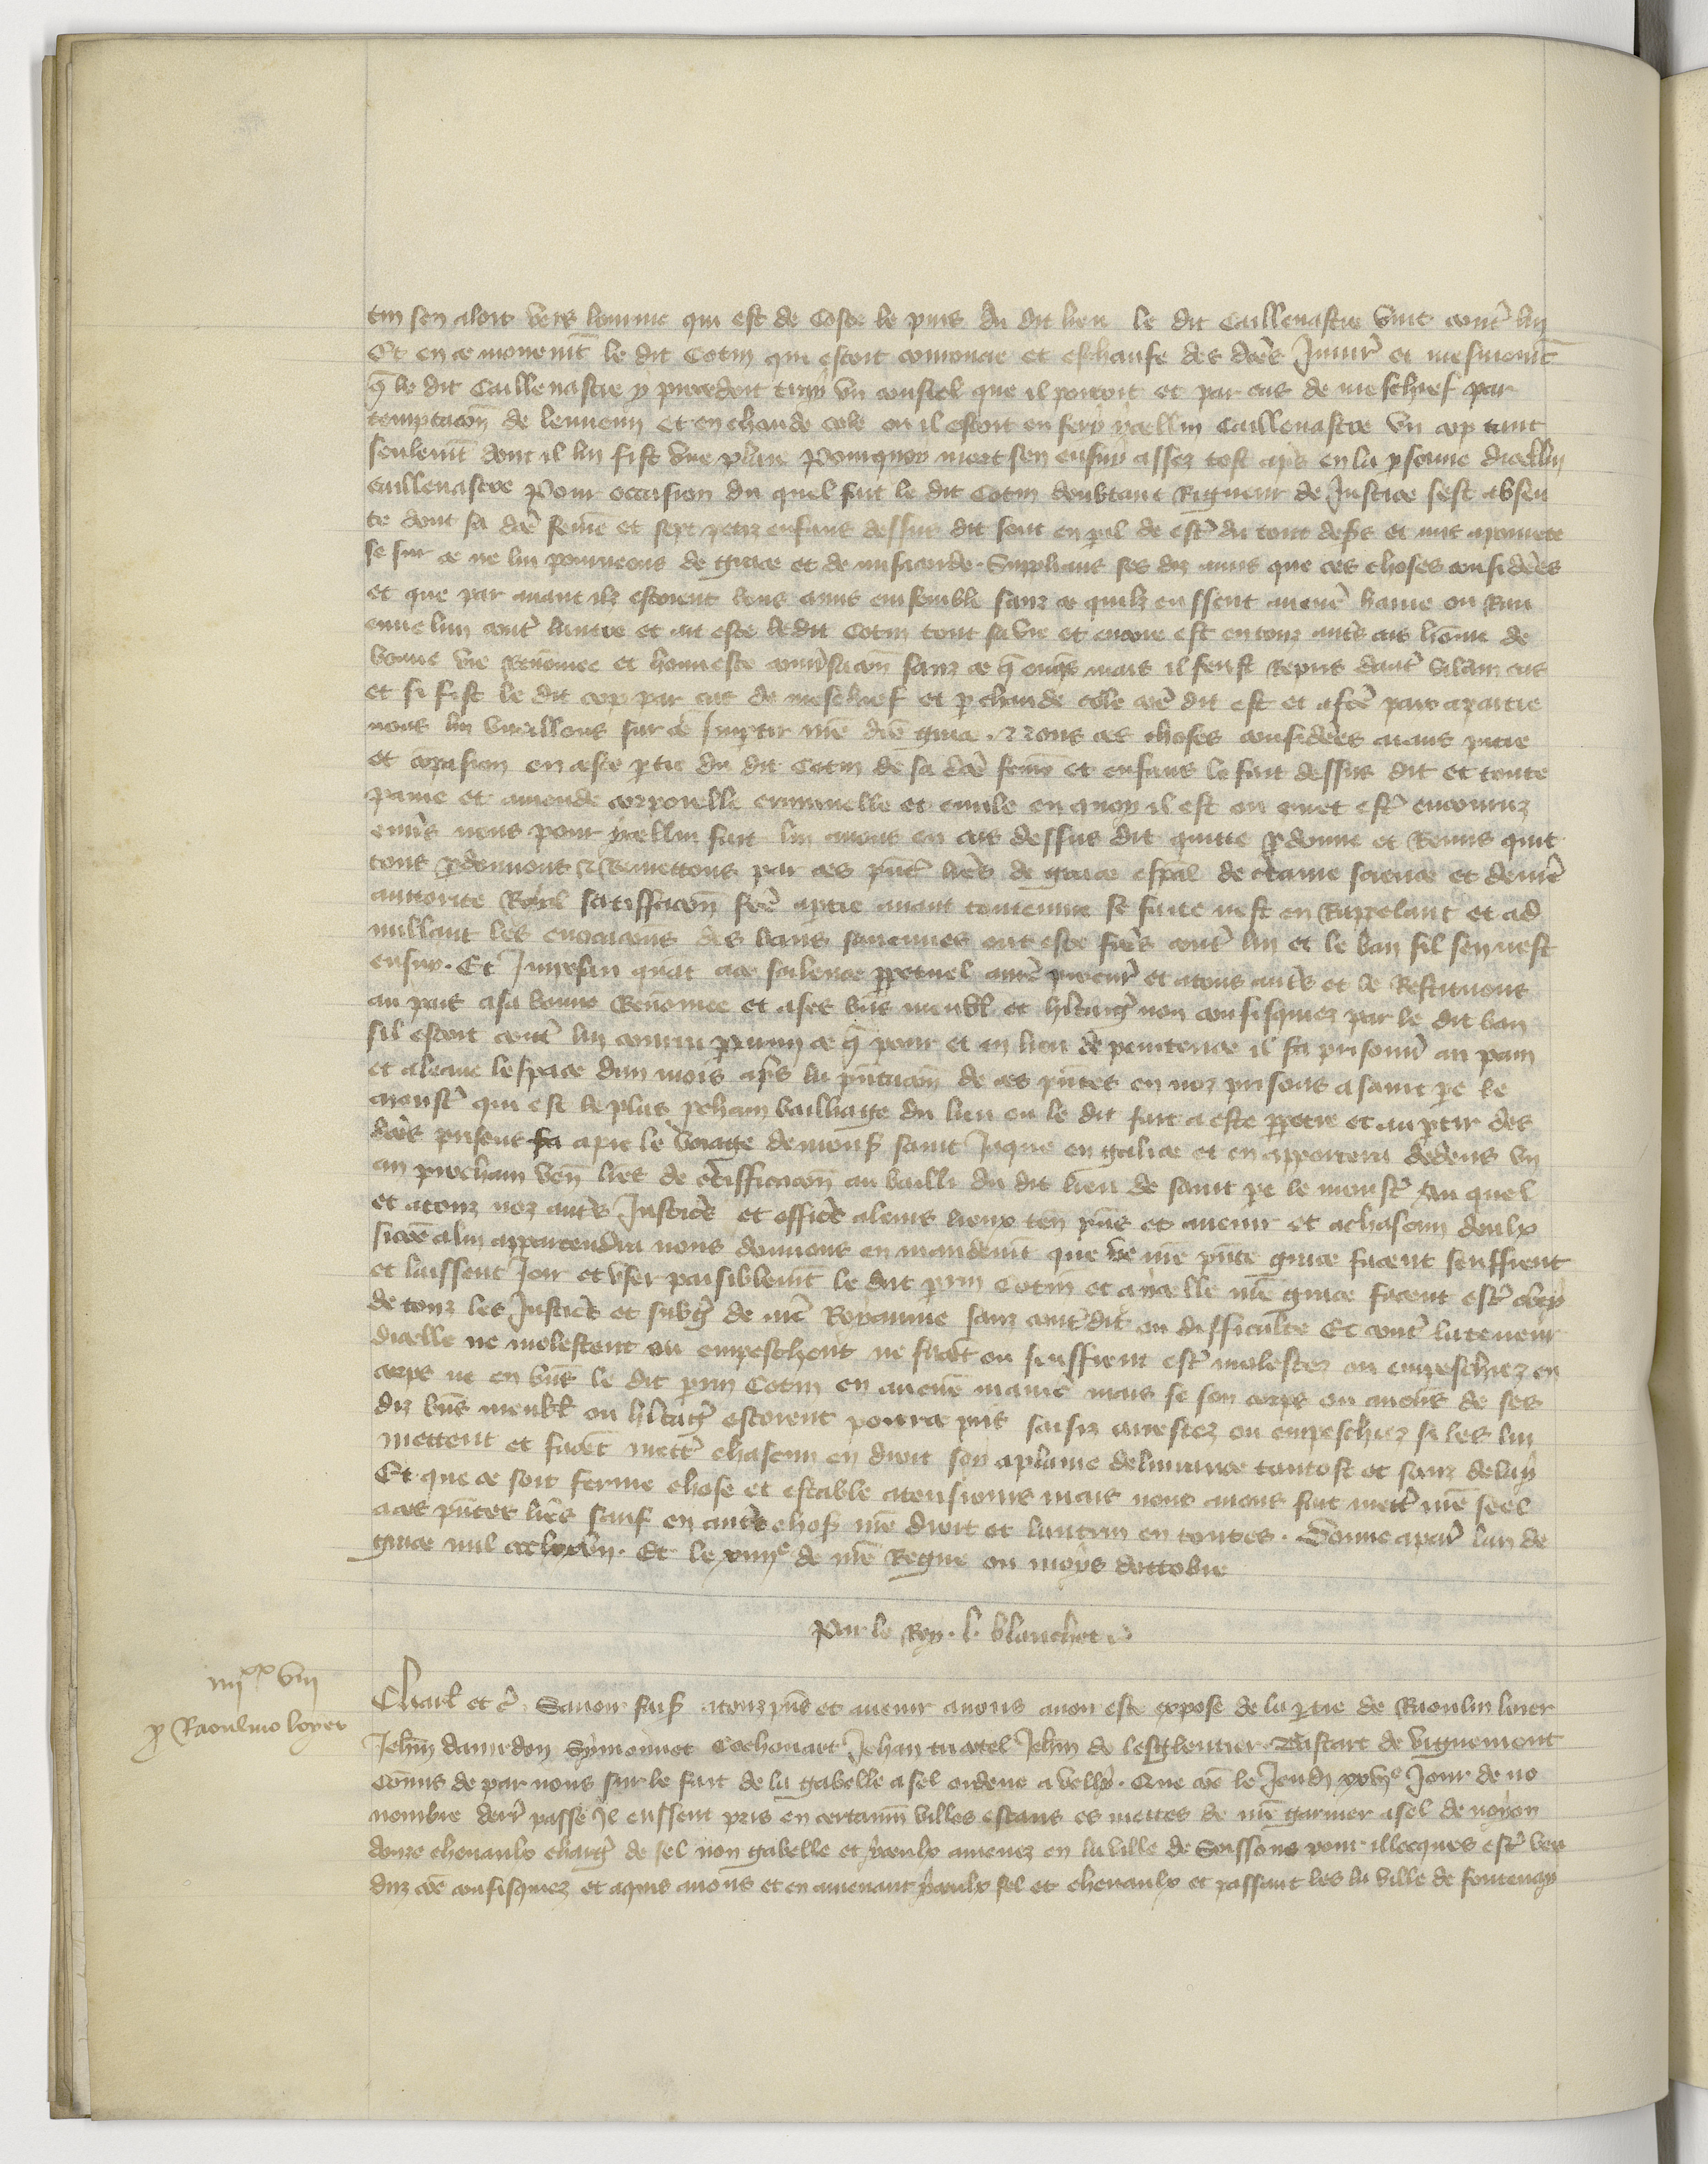 tin sen aloit vers lomme qui est de coste le puis du dit lieu le dit Caillenastre vint contr luy
Et en ce mouvemt le dit Cotin qui estoit commeue et eschaufe des dces Iniur et mesmemt
q le dit Caillenastre y procedoit tira un coustel que il portoit et par cas de meschief par
temptacon de lennemi et en chaude cole ou il estoit en fery ycellui Caillenastre un cop tant
seulemt dont il lui fist une plaie Pourquoy mort sen ensuy assez tost aps en la psonne dicellui
Caillenastre Pour occasion du quel fait le dit Cotin doubtant Rigueur de Justice sest absen
te dont sa dce feme et sept petiz enfans dessus dit sont en pil de estr du tout defs et mis a povrete
se sur ce ne lui pourveons de grace et de misicorde. Suppliant ses diz amis que ces choses considees
et que par avant ilz estoient bons amis ensemble sanz ce quilz eussent aucune haine ou Ran
cune lun contr lautre et ait este le dit Cotin tout sa vie et encore est en touz autrs cas home de
bonne vie Renomee et honneste conversacon sanz ce q onqs mais il feust Repris dautr vilain cas
et si fist le dit cop par cas de meschief et p chaude cole coe dit est et a fce paix a partie
nous lui vueillons sur ce Impartir nre dce grace. Nous ces choses considees aians pitie
et compasion en ceste ptie du dit Cotin de sa dce feme et enfans le fait dessus dit et toute
paine et amende corporelle criminelle et civile en quoy il est ou puet estr encouruz
envs nous pour ycellui fait lui avons en cas dessus dit quitte pdonne et Remis quit
tons pdonnons & Remettons par ces pntes lres de grace espal de ctaine science et de nre
auttorite Royal satiffacon fce a ptie avant toutevoie se faite nest en Rappelant et ad
nullant les evocacons des bans sauennes ont este fcs contr lui et le ban sil sen nest
ensuy. Et Imposan quat a ce scilence ppetuel a nre procur et a tous autrs et le Restituons
au pais a sa bonne Renomee et a ses bns meubl et hitaig non confisquiez par le dit ban
sil estoit contr lui couru parmi ce q pour et en lieu de penitence il sa prisonn au pain
et a leaue lespace dun mois aps la pntacon de ces pntes en noz prisons a saint pe le
moustr qui est le plus pchain bailliage du lieu ou le dit fait a este ppetre et au ptir des
dces prisons fa a pie le voiage de mons saint Jaque en galice et en apportera dedens un
an prochain ven lres de ctifficacon au bailli du dit lieu de saint pe le moustr Au quel
et a touz noz autrs Justices et offices a leurs lieux ten pns et avenir et a chascun deulx
sicoe a lui appartendra nous donnons en mandemt que de nre pnte grace facent seuffrent
et laissent Joir et user paisiblemt le dit prin Cotin et a ycelle nre grace facent estr obey
de touz les Justices et subg de nre Royaume sanz contrdit ou difficulte Et contr la teneur
dicelle ne molestent ou empeschent ne facet ou seuffrent estr molestez ou empeschiez en
corps ne en bns le dit prin Cotin en aucune manie mais se son corps ou aucuns de ses
diz bns meubl ou hitag estoient pour ce pris saisiz arrestez ou empeschiez si les lui
mettent et facet mettr chascun en droit soy a plaine delivrance tantost et sanz delay
Et que ce soit ferme chose et estable a tousiours mais nous avons fait mettr nre seel
a ces pntes lres sauf en autrs chos nre droit et lautruy en toutes. Donne a par lan de
grace mil ccclxxvij. Et le xiiije de nre Regne ou moys dottobre
Par le Roy. l. blanchet
iiijxx viii
p Raoulino loyer
Charl et c. Savoir fais a touz pns et avenir a nous avoir este expose de la ptie de Raoulin loier
Jehan damrdon Symonnet Cochonart Jehan tuotel Jehan de lesglentier Wistart de vignemont
Comis de par nous sur le fait de la gabelle a sel ordene a velly. Que coe le Jeudi xxvje Jour de no
vembre derr passe Il eussent pris en certainn villes estans es mettes de nre garnier a sel de noyon
douze chevaulx charg de sel non gabelle et yceulx amenez en la ville de Soissons pour illecques estr ven
duz coe confisquiez et aquis a nous et en amenant yceulx sel et chevaulx et passant les la ville de fontenay